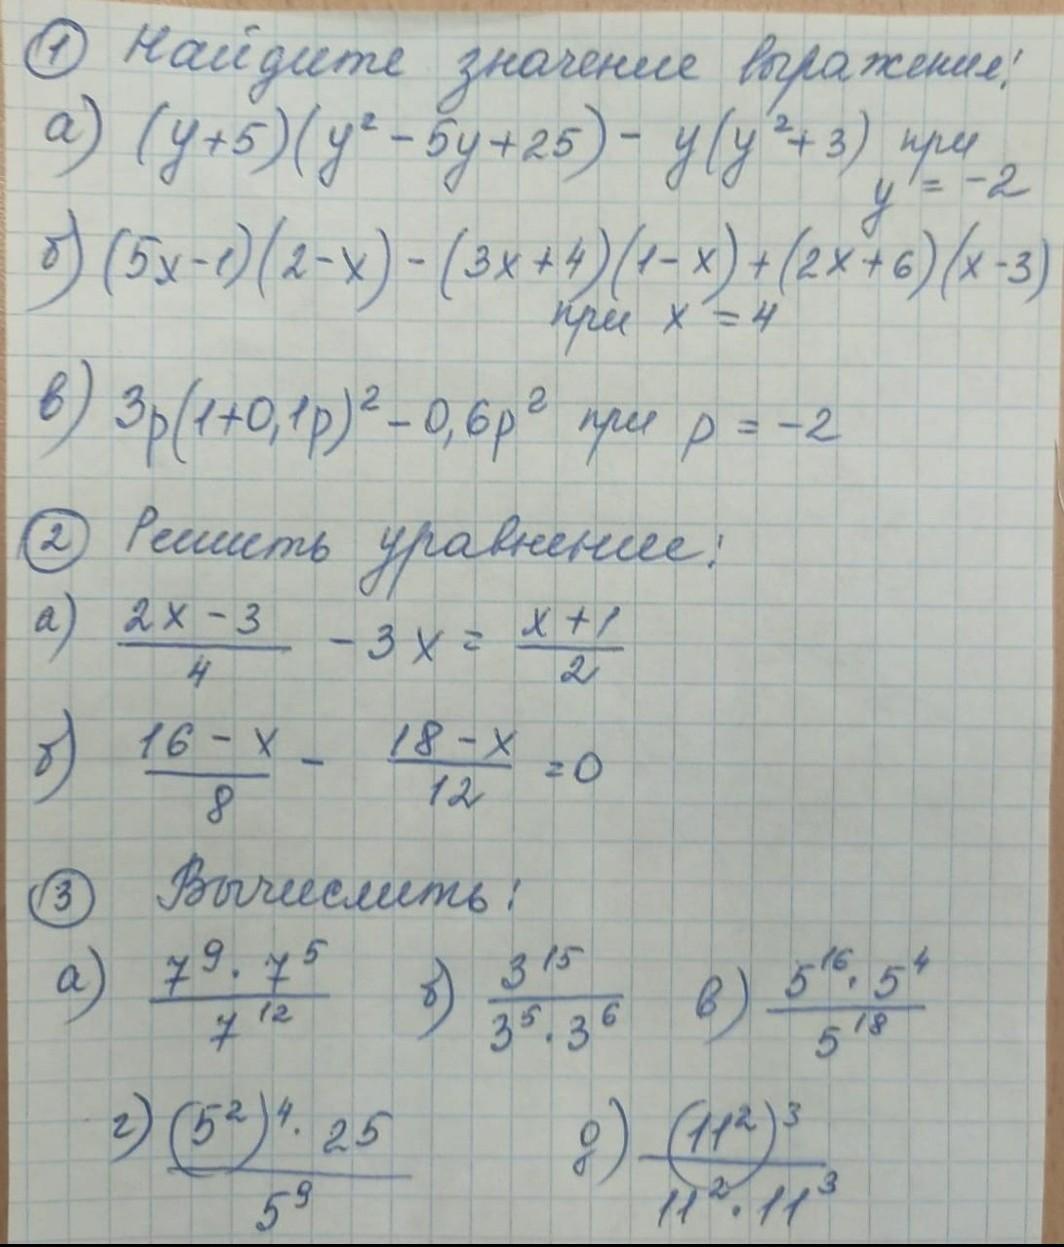 ① Найдите значение выражения:
а) (y+5)(y² - 5y + 25) - y(y² + 3) при
y = -2
б) (5x-1)(2-x) - (3x+4)(1-x) + (2x+6)(x-3)
при x = 4
в) 3p(1+0,1p)² - 0,6p² при p = -2
② Решить уравнение:
а) (2x - 3)/4 - 3x = (x+1)/2
б) (16 - x)/8 - (18 - x)/12 = 0
③ Вычислить:
а) (7⁹ · 7⁵)/7¹² б) 3¹⁵/(3⁵ · 3⁶) в) (5¹⁶ · 5⁴)/5¹⁸
г) ((5²)⁴ · 25)/5⁹ д) (11²)³/(11² · 11³)